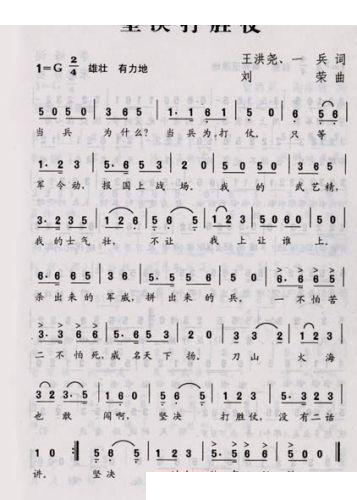 坚决打胜仗
1=G 2/4 雄壮 有力地 王洪尧、一 兵 词
刘 荣 曲
5 0 5 0 | 3 6 5 | 1· 1 6 1 | 5 0 | 6 5 6 |
当 兵 为 什 么? 当 兵 为,打 仗, 只 等
1· 2 3 | 5· 6 5 3 | 2 0 | 5 0 5 0 | 3 6 5 |
军 令动, 报 国 上 战 场。 我 的 武 艺 精,
3· 2 3 5 | 1 2 6 | 5 6 5 | 1 2 3 | 5 0 6 0 | 5 0 |
我 的 士 气 壮, 不 让 我 上 让 谁 上。
6· 6 6 5 | 3 6 1 | 5· 5 5 6 | 5 0 | 6 5 6 | 1 2 3 |
杀 出 来 的 军 威, 拼 出 来 的 兵, 一 不 怕 苦
3· 3 6 6 | 5· 6 5 3 | 2 0 | 3 3 2 | 1 2 3 |
二 不 怕 死, 威 名 天 下 扬。 刀 山 火 海
3 2 3· 5 | 1 6 0 | 5 6 5 | 1· 2 3 | 5· 6 5 6 |
也 敢 闯啊, 坚 决 打 胜 仗, 没 有 二 话
1 0 :‖ 5 6 5 | 1· 2 3 | 5· 5 6 | 5 0 0 | 1 0 ‖
讲。 坚 决